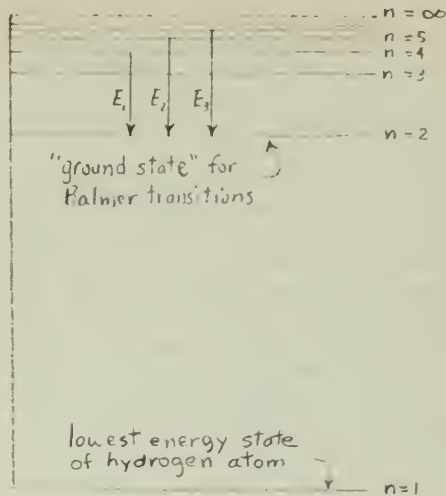 n = ∞
n = 5
n = 4
n = 3
E₁ E₂ E₃
n = 2
"ground state" for
Balmer transitions
lowest energy state
of hydrogen atom
n = 1